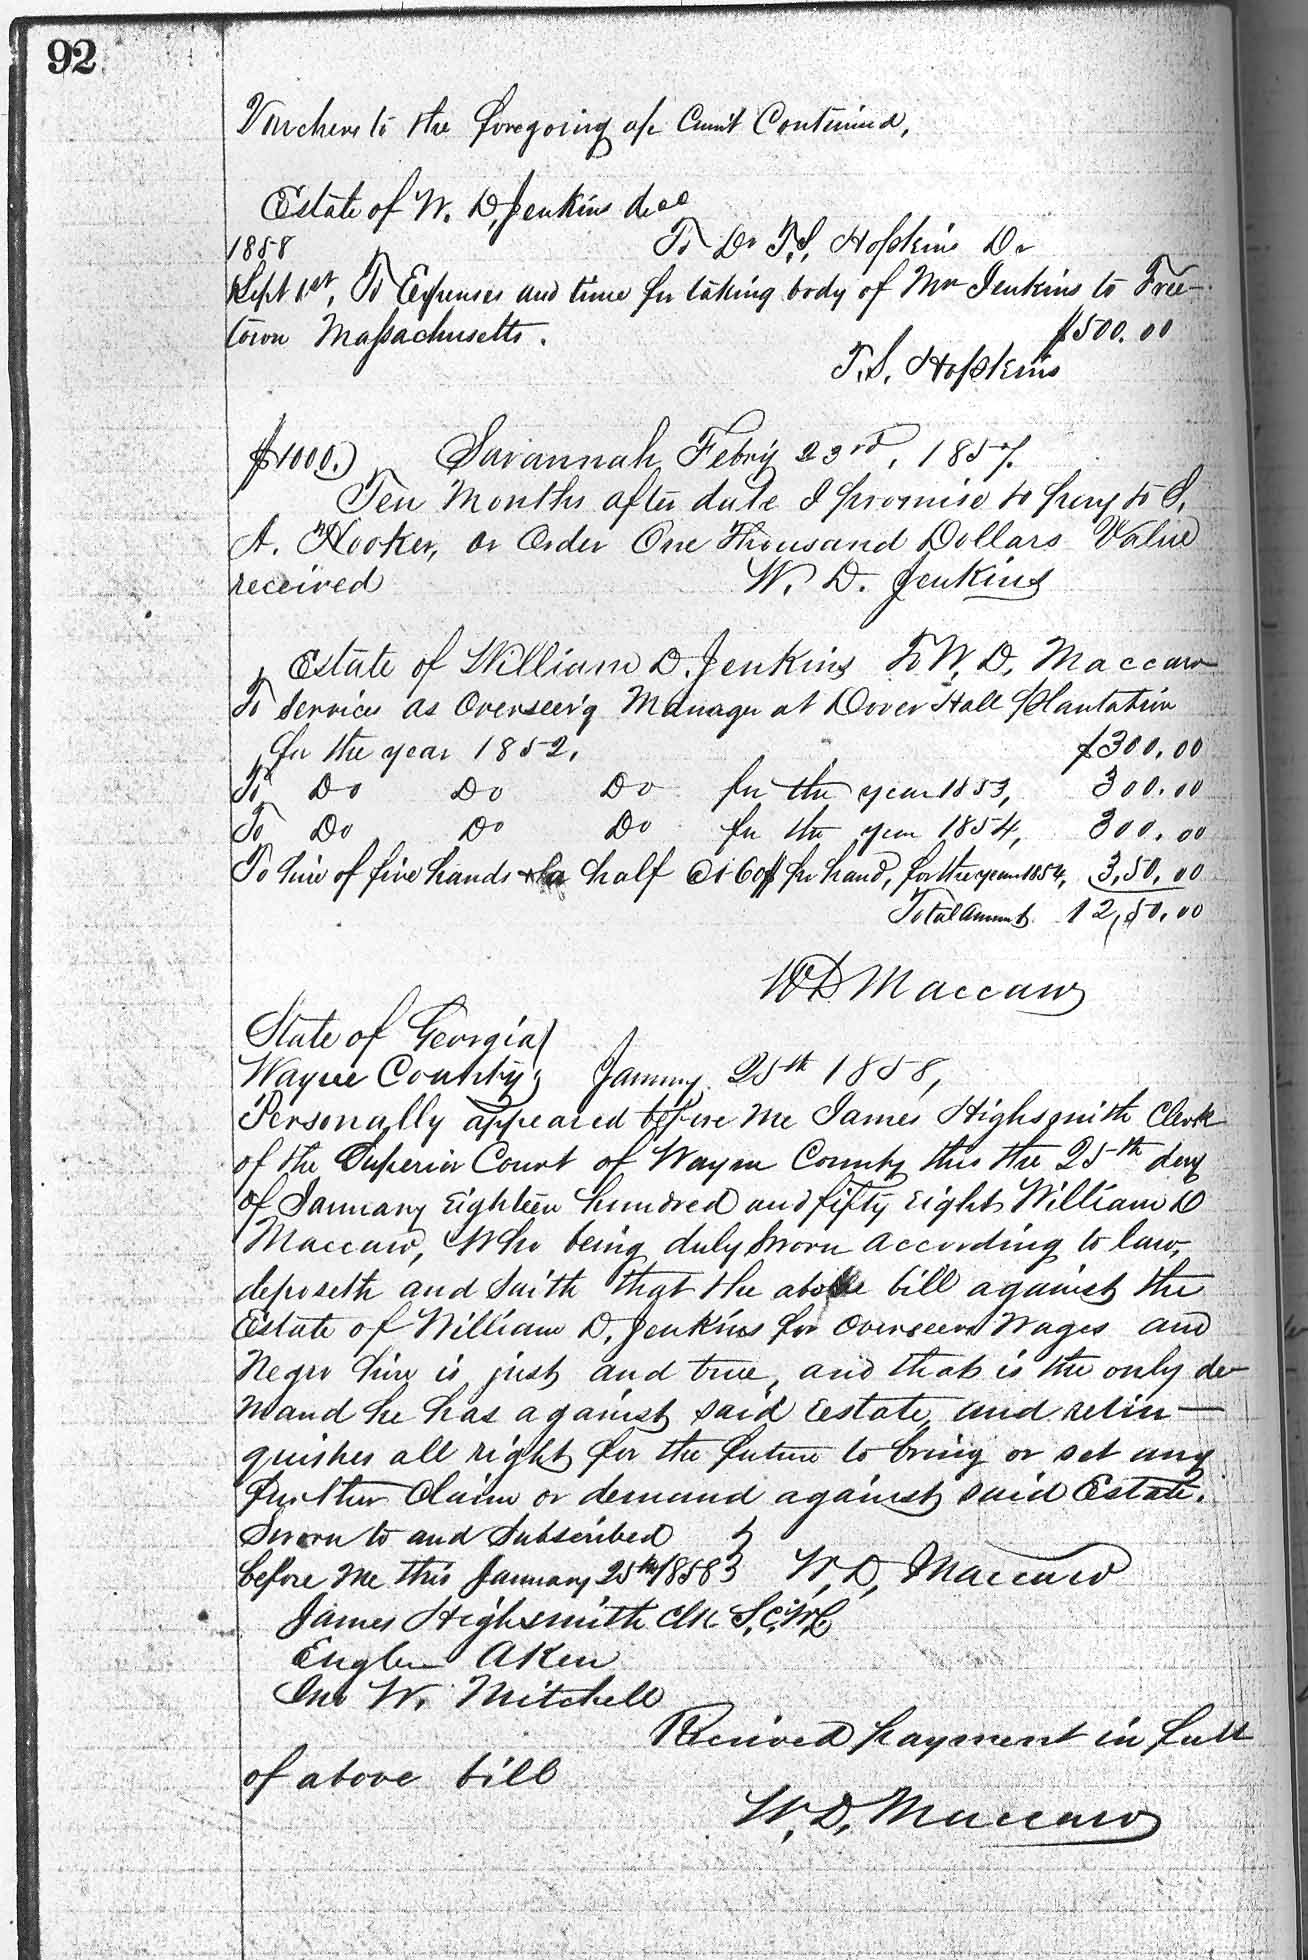 92
Vouchers to the foregoing a/c Curnt Continued,
Estate of W. D. Jenkins decd
1858 To Dr T. S. Hopkins Dr
Sept 1st, To Expenses and time for taking body of Mr Jenkins to Free-
town Massachusetts. $500.00
T. S. Hopkins
$1000.) Savannah Febry 23rd, 1857.
Ten Months after date I promise to pay to S.
A. Hooker, or Order One Thousand Dollars Value
received W. D. Jenkins
Estate of William D. Jenkins To W. D. Maccaw
To Services as Overseer & Manager at Dover Hall Plantation
for the year 1852. $300.00
To Do Do Do for the year 1853, 300.00
To Do Do Do for the year 1854, 300.00
To hire of five hands & a half at 60$ pr hand, for the year 1854, 3,50.00
Total amount 12,50.00
W D Maccaw
State of Georgia)
Wayne County; January 25th 1858,
Personally appeared before me James Highsmith Clerk
of the Superior Court of Wayne County this the 25th day
of January Eighteen hundred and fifty Eight William D
Maccaw, Who being duly Sworn according to law,
deposeth and Saith that the above bill against the
Estate of William D. Jenkins for Overseers Wages and
Negro hire is just and true, and that is the only de-
mand he has against said Estate, and relin-
quishes all right for the future to bring or set any
further Claim or demand against said Estate.
Sworn to and Subscribed }
before Me this January 25th 1858 } W. D. Maccaw
James Highsmith Clk S. C. W. C
Aken
Jno W. Mitchell
Received payment in full
of above bill
W. D. Maccaw